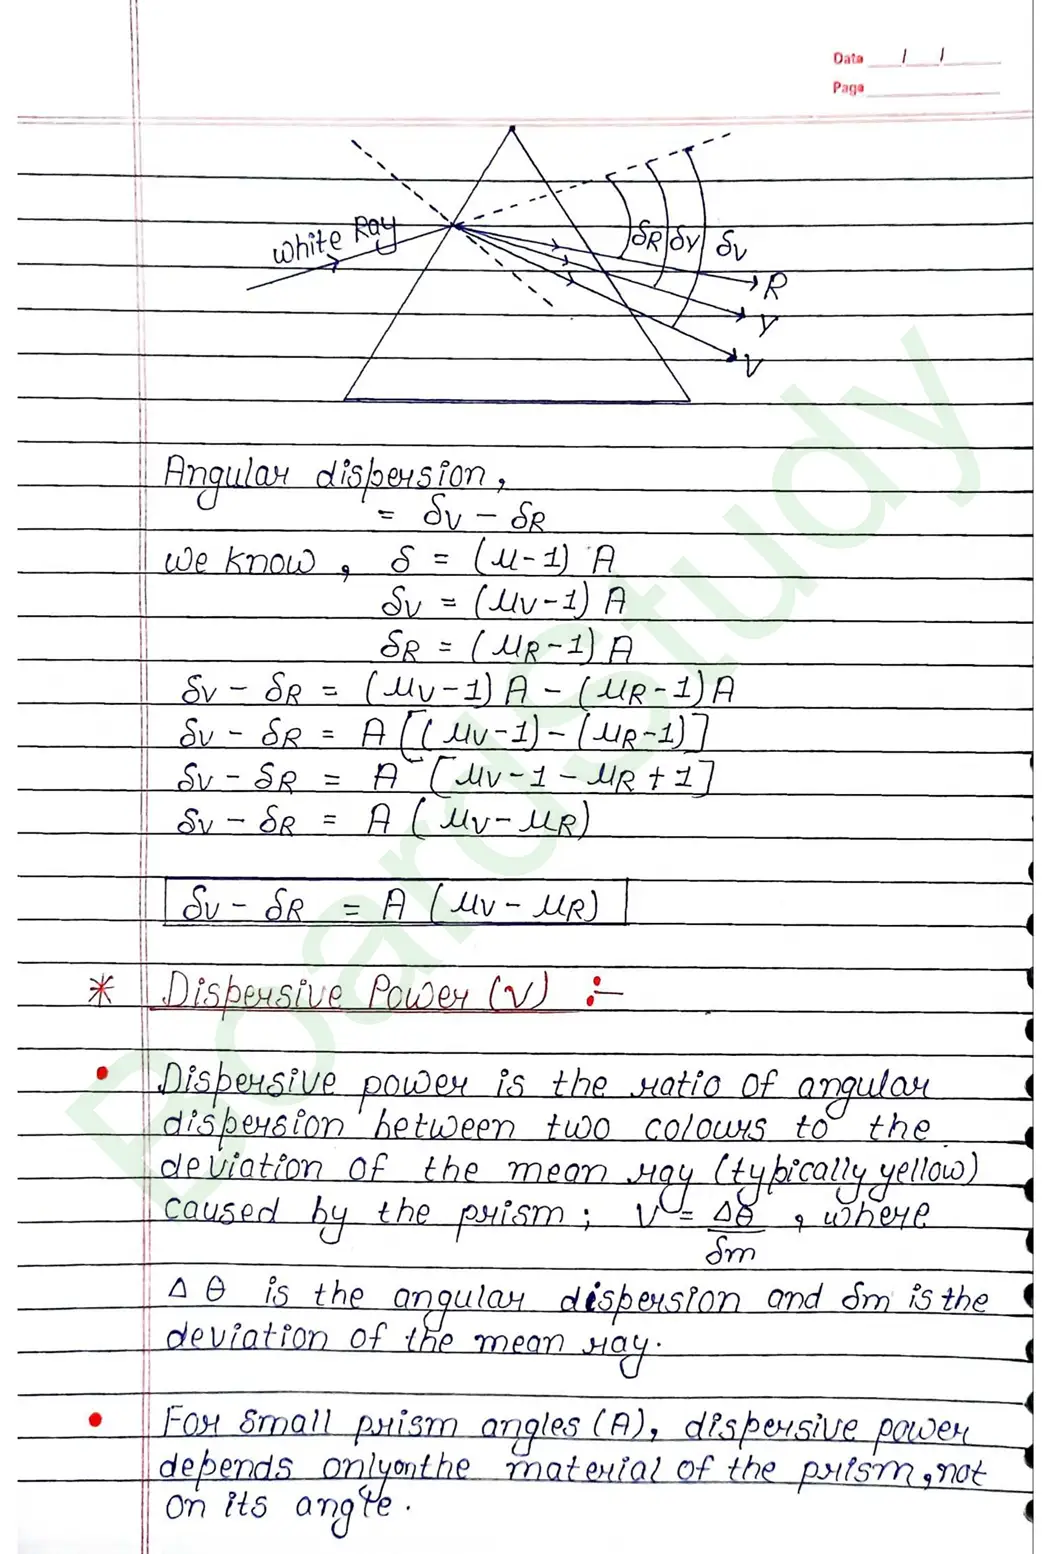 Date / /
Page
White Ray
δR δY δV
R
Y
V
Angular dispersion,
= δV - δR
we know, δ = (μ-1) A
δV = (μV-1) A
δR = (μR-1) A
δV - δR = (μV-1) A - (μR-1) A
δV - δR = A [(μV-1) - (μR-1)]
δV - δR = A [μV-1 - μR+1]
δV - δR = A (μV - μR)
δV - δR = A (μV - μR)
* Dispersive Power (V) :-
• Dispersive power is the ratio of angular
dispersion between two colours to the
deviation of the mean ray (typically yellow)
caused by the prism; V = Δθ/δm, where
Δθ is the angular dispersion and δm is the
deviation of the mean ray.
• For small prism angles (A), dispersive power
depends only on the material of the prism, not
on its angle.
BoardStudy